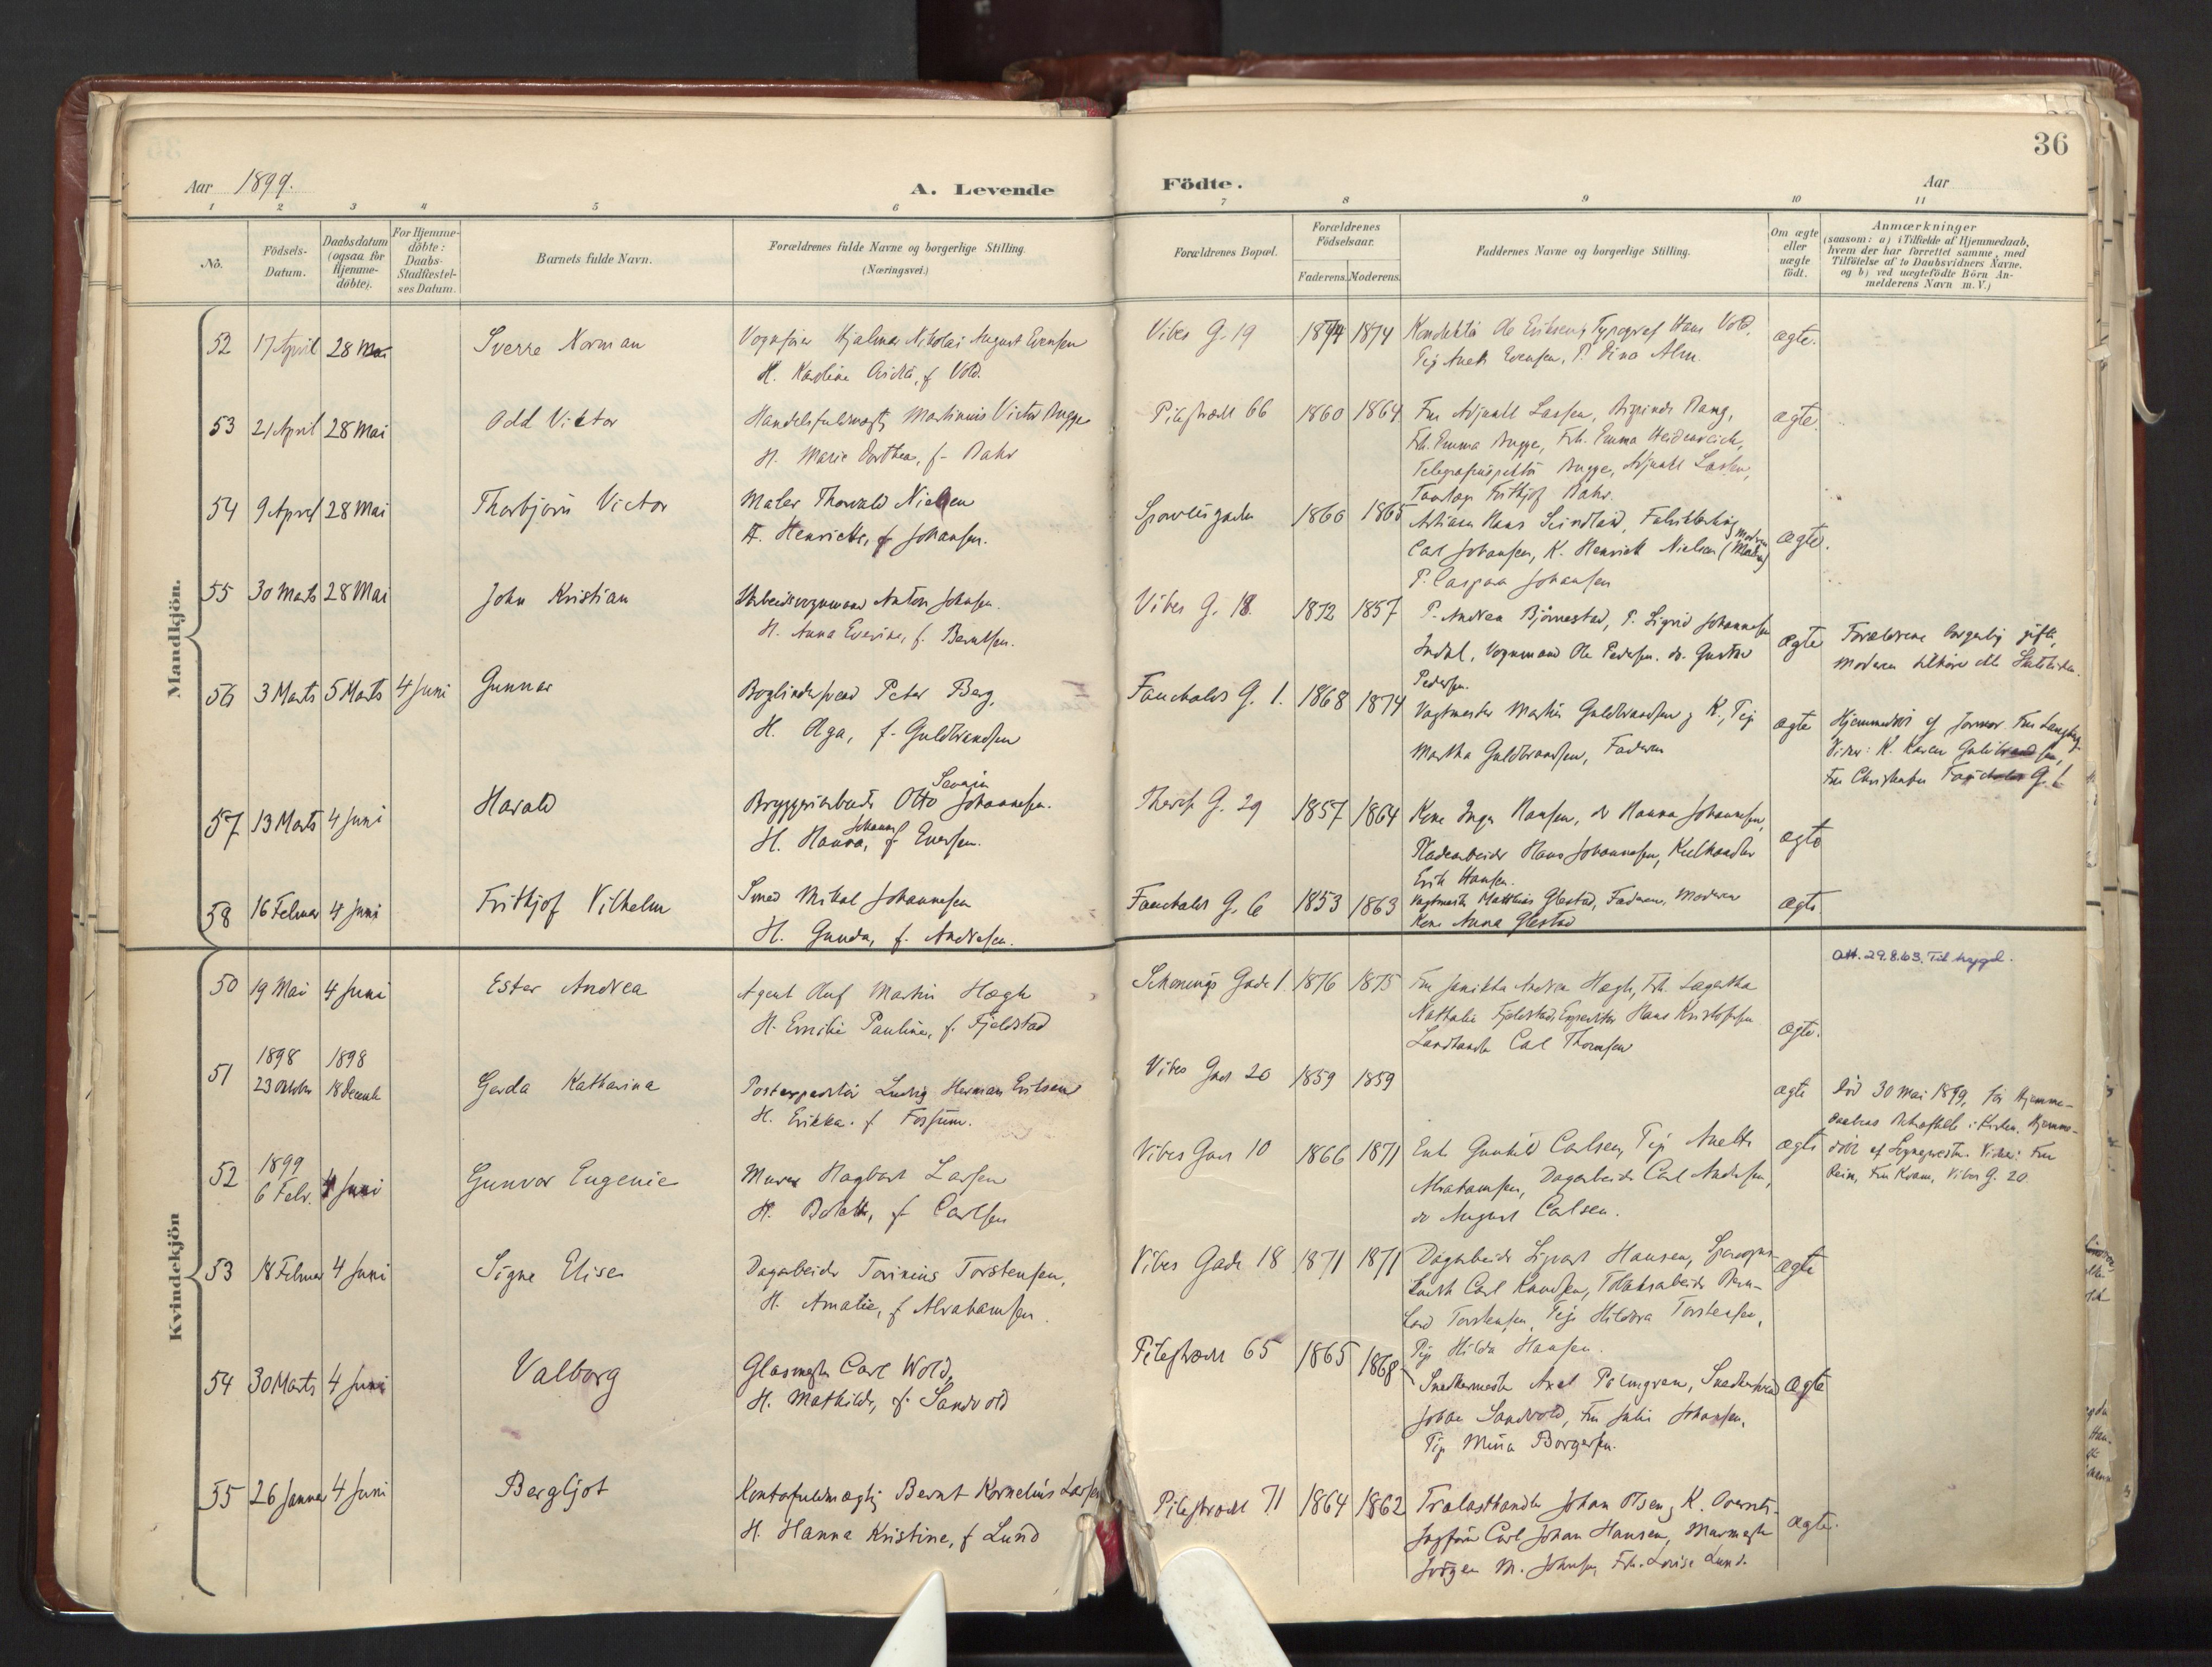 36
Aar 1899.
A. Levende
Födte.
Aar
1
2
3
4
5
6
7
8
9
10
11
No.
Födsels-
Datum.
Daabsdatum
(ogsaa for
Hjemme-
döbte).
For Hjemme-
döbte:
Daabs-
Stadfæstel-
ses Datum.
Barnets fulde Navn.
Forældrenes fulde Navne og borgerlige Stilling.
(Næringsvei.)
Forældrenes Bopæl.
Forældrenes
Födselsaar.
Faderens.
Moderens.
Faddernes Navne og borgerlige Stilling.
Om ægte
eller
uægte
födt.
Anmærkninger
(saasom: a) i Tilfælde af Hjemmedaab,
hvem der har forrettet samme, med
Tilföielse af to Daabsvidners Navne.
og b) ved uægtefödte Börn An-
melderens Navn m. V.)
Mandkjön.
52 17 April 28 Mai Sverre Norman
Hjalmar Nikolai August Evensen
H. Karoline, f Vold.
Vibes G. 19
1874
Ole Eriksen, Typograf Hans Vold,
Evensen, P. Dina Alm.
ægte.
53 21 April 28 Mai Odd Victor
Martinius Victor Bugge
H. Marie Dorthea, f. Bahr
Pilestræde 66
1860 1864
Fru Adjunkt Lassen,
Frk. Emma Bugge, Frk. Emma Heidenreich,
Bugge, Adjunkt Lassen,
Frithjof Bahr.
ægte.
54 9 April 28 Mai Thorbjörn Victor
Maler Thorvald Nielsen
H. Henriette, f Johansen.
1866 1865
Hans
Carl Johansen, K. Henriette Nielsen (Moderen)
P. Caspara Johansen
ægte.
55 30 Marts 28 Mai John Kristian
Arbeidsvognmand Anton Johnsen.
H. Anna Everine, f. Berntsen.
Vibes G. 18.
1872 1857
P. Andrea Björnestad, P. Sigrid Johannesen
Vognmand Ole Pedersen. do. Gustav
Pedersen.
ægte
Forældrene borgerlig gifte,
Moderen tilhörer ikke Statskirken.
56 3 Marts 5 Marts 4 Juni Gunnar
Bogbindersvend Peter Berg,
H. Olga, f. Guldbrandsen
Fauchalds G. 1.
1868 1874
Vagtmester Martin Guldbrandsen & K., Pige
Martha Guldbrandsen, Faderen
ægte
Hjemmedöbt af Jormor Fru Langberg.
Vidner: K. Karen Guldbrandsen,
Fru Christensen Fauchalds G. 1
57 13 Marts 4 Juni Harald
Bryggeriarbeider Otto Johannesen.
H. Hanna, Johanne f Evensen.
Theres. G. 29
1857 1864
Kone Inga Hansen, do Hanna Johannesen,
Hans Johannesen, Kulhandler
Erik Hansen.
ægte
58 16 Februar 4 Juni Frithjof Vilhelm
Smed Mikal Johannesen
H. Gunda, f. Andresen.
Fauchalds G. 6
1853 1863
Vagtmester Matthias Glestad, Faderen, Moderen
Kone Anna Glestad
ægte
Kvindekjön
50 19 Mai 4 Juni Ester Andrea
Agent Oluf Martin Hægh
H. Emilie Pauline, f. Fjeldstad
Schönings Gade 1.
1876 1875
Fru Andrea Hægh, Frk. Lagertha
Nathalie Fjeldstad, Expeditör Hans Kristofersen
Landhandler Carl Thomsen
ægte.
Att. 29.8.63. Til trygd.
51 1898 23 Oktober 1898 18 Decemb Gerda Katharina
Postexpeditör Ludvig Herman Eriksen
H. Erikka. f Fossum.
Vibes Gad. 20
1859 1859
ægte
Död 30 Mai 1899, för Hjemme-
daabens Bekræftelse i Kirken. Hjemme-
döbt af Sognepresten. Vidner: Fru
Rein, Fru Kram, Vibes G. 20.
52 1899 6 Febr. 4 Juni Gunvor Eugenie
Murer Hagbart Larsen
H. Bolette, f Carlsen
Vibes Gade 10
1866 1871
Enke Gunhild Carlsen, Pige Anette
Abrahamsen, Dagarbeider Carl Andersen,
do August Carlsen.
ægte
53 18 Februar 4 Juni Signe Elise
Dagarbeider Torinius Torstensen,
H. Amalie, f Abrahamsen.
Vibes Gade 18
1871 1871
Dagarbeider Sigvart Hansen, Sporvogns-
Carl Knudsen, Tobaksarbeider Bern-
hard Torstensen, Pige Hildora Torstensen,
Pige Hilda Hansen.
ægte
54 30 Marts 4 Juni Valborg
Glasmester Carl Wold,
H. Mathilde, f. Sandvold
Pilestræde 65
1865 1868
Snedkermester Axel Palmgren, Snedkersvend
Johan Sandvold, Fru Julie Johansen,
Pige Mina Borgersen.
ægte
55 26 Januar 4 Juni Bergljot
Kontorfuldmægtig Bernt Kornelius Larsen
H. Hanna Kristine, f Lund
Pilestræde 71
1864 1862
Trælasthandler Johan Olsen & K. Overrets-
sagförer Carl Johan Hansen, Murmester
Jörgen M. Johnsen, Frk. Lovise Lund.
ægte.